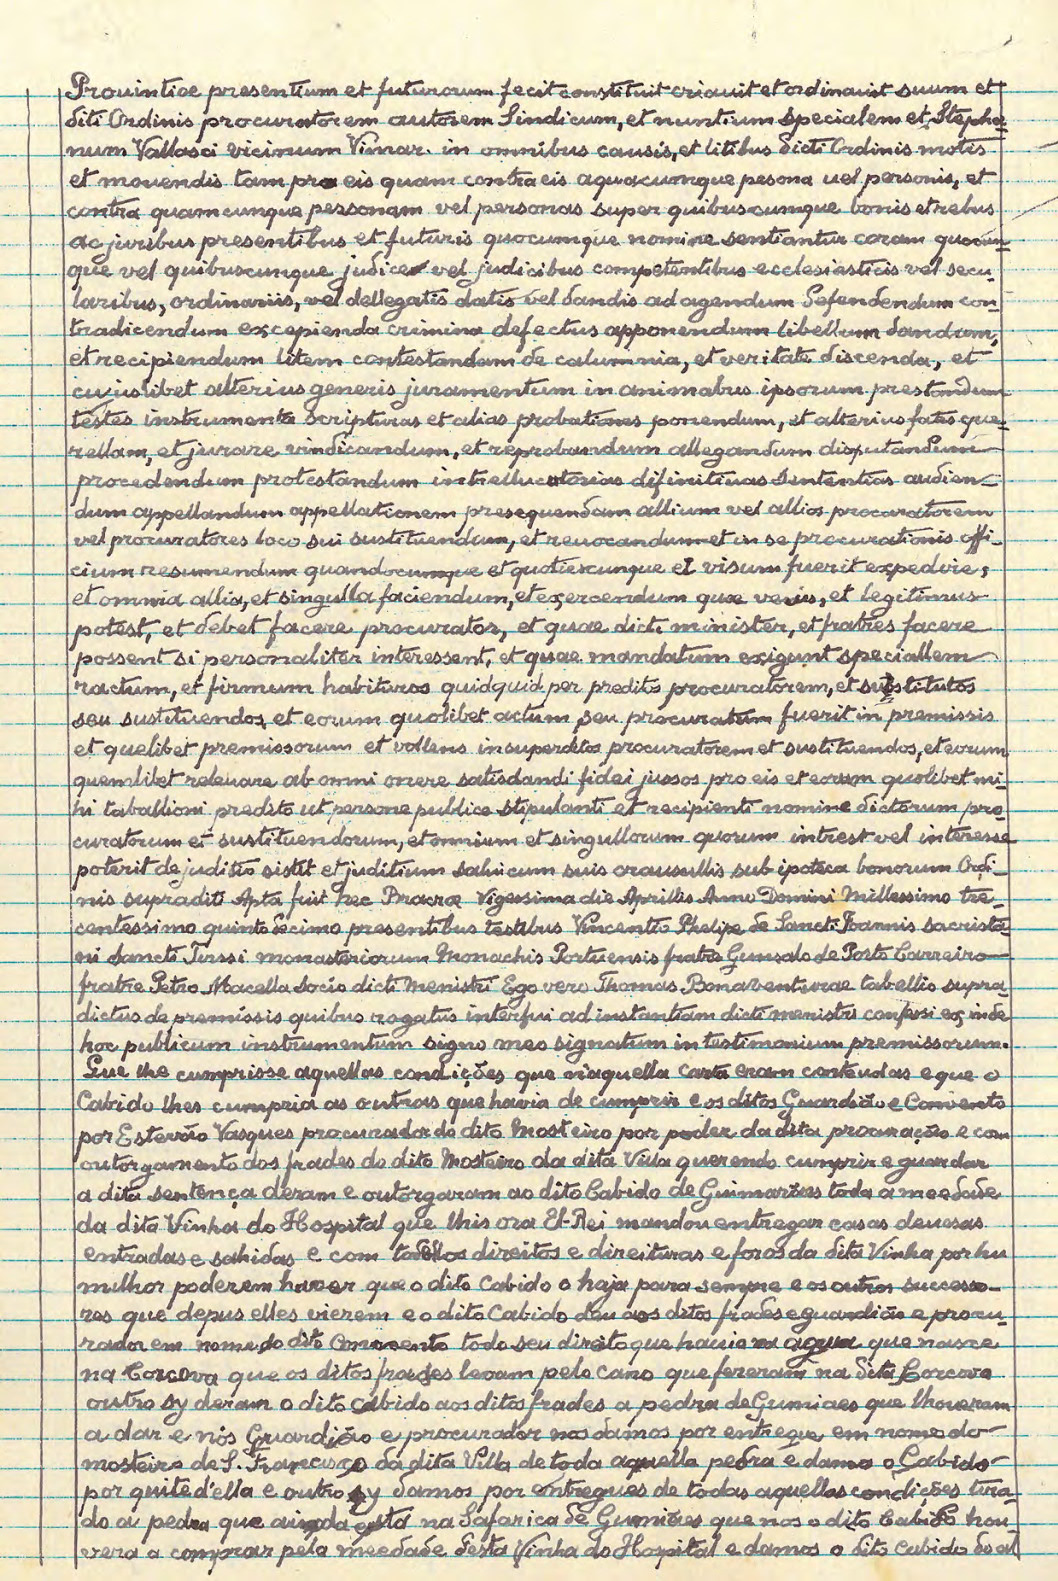 Prouintiae presentium et futurorum fecit constituit criauit et ordinauit suum et
diti Ordinis procuratorem autorem Sindicum, et nuntium specialem et Stepha-
num Vallasci vicinum Vimar. in omnibus causis, et litibus dicti Ordinis motis
et mouendis tam pro eis quam contra eis aquacumque pesona uel personis, et
contra quamcunque personam vel personas super quibuscumque bonis et rebus
ac juribus presentibus et futuris quocumque nomine sentiantur coram quocun-
que vel quibuscunque judice vel judicibus competentibus ecclesiasticis vel secu
laribus, ordinariis, vel dellegatis datis vel dandis ad agendum defendendum con-
tradicendum excepienda crimina defectus apponendum libellum dandum,
et recipiendum litem contestandam de calumnia, et veritate discenda, et
cujuslibet alterius generis juramentum in animabus ipsorum prestandum
testes instrumenta scripturas et alias probationes ponendum, et alterius fates que-
rellam, et jurare vindicandum, et reprobandum allegandum disputandum
procedendum protestandum intrellucatorias difinitiuas sententias audien-
dum appellandum appellationem presequendam allium vel allios procuratorem
vel procuratores loco sui sustituendum, et reuocandum et in se procurationis offi-
cium resumendum quandocumque et quotiescunque el visum fuerit expedvie,
et omnia allia, et singulla faciendum, et exercendum quae verus, et legitimus
potest, et debet facere procurator, et quae dicti minister, et fratres facere
possent si personaliter interessent, et quae mandatum exigunt speciallem
ractum, et firmum habituros quidquid per preditos procuratorem, et sustitutos
seu sustituendos et eorum quolibet actum seu procuratum fuerit in premissis
et quelibet premissorum et vollens insuperditos procuratorem et sustituendos, et eorum
quemlibet releuare ab omni onere satisdandi fidei jussos pro eis et eorum quolibet mi-
hi taballioni predito ut persone publice stipulanti et recipienti nomine dictorum pro
curatorum et sustituendorum, et omnium et singullorum quorum intrest vel interesse
poterit de juditio sistit et juditium saluicum suis crausullis sub ipoteca bonorum Ordi-
nis supraditi Apta fuit hec Bracrae Vigessima die Aprillis Anno Domini Millessimo tre-
centessimo quinto decimo presentibus testibus Vincentio Phelipe de Sancti Joannis sacrista-
ni Sancti Tirssi monasteriorum Monachis Portuensis fratre Gunsalo de Porto Carreiro
fratre Petro Macella Socio dicti Menistri Ego vero Thomas Bonaventurae tabellio supra-
dictus de premissis quibus rogatus interfui ad instantiam dicti menistri confersi ex inde
hoc publicum instrumentum signo meo signatum in testimonium premissorum.
Que lhe cumprisse aquellas condições que n'aquella carta eram conteudas e que o
Cabido lhes cumpria as outras que havia de cumprir e os ditos Guardião e Convento
por Estevão Vasques procurador do dito Mosteiro por poder da dita procuração e com
outorgamento dos frades do dito Mosteiro da dita Villa querendo cumprir e guardar
a dita sentença deram e outorgaram ao dito Cabido de Guimarães toda a meedade
da dita Vinha do Hospital que lhis ora El-Rei mandou entregar casas devesas
entradas e sahidas e com todollos direitos e direituras e foros da dita Vinha por hu
milhor poderem haver que o dito Cabido o haja para sempre e os outros successo-
res que depus elles vierem e o dito Cabido deu aos ditos frades e guardião e procu-
rador em nome do dito Convento todo seu direito que havia na agua que nasce
na Corcova que os ditos frades levam pelo cano que fereram na dita Corcova
outro sy deram o dito cabido aos ditos frades a pedra de Gumiaes que lhoueram
a dar e nós Guardião e procurador nos damos por entregue em nome do
mosteiro de S. Francisco da dita Villa de toda aquella pedra e damos o Cabido
por quite d'ella e outro sy damos por entregues de todas aquellas condições tira-
do a pedra que ainda está na Safarica de Gumiães que nos o dito Cabido hou
vera a comprar pela meedade desta Vinha do Hospital e damos o dito Cabido do al